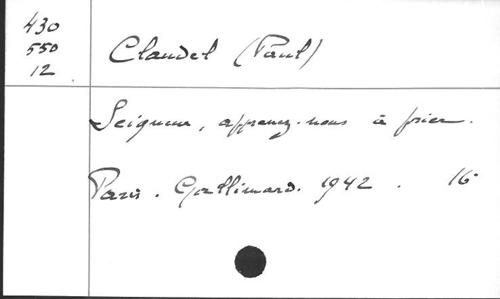 430
550
12
Claudel (Paul)
Seigneur, apprenez-nous à prier.
Paris. Gallimard. 1942. 16°